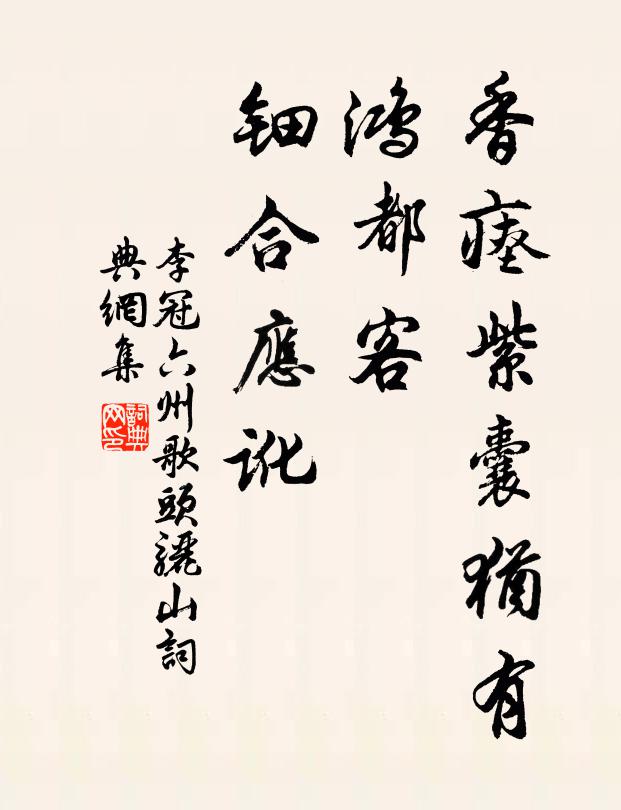 香瘞紫囊猶有
鴻都客
鈿合應訛
李冠六州歌頭驪山詞
典網集
詞典网印